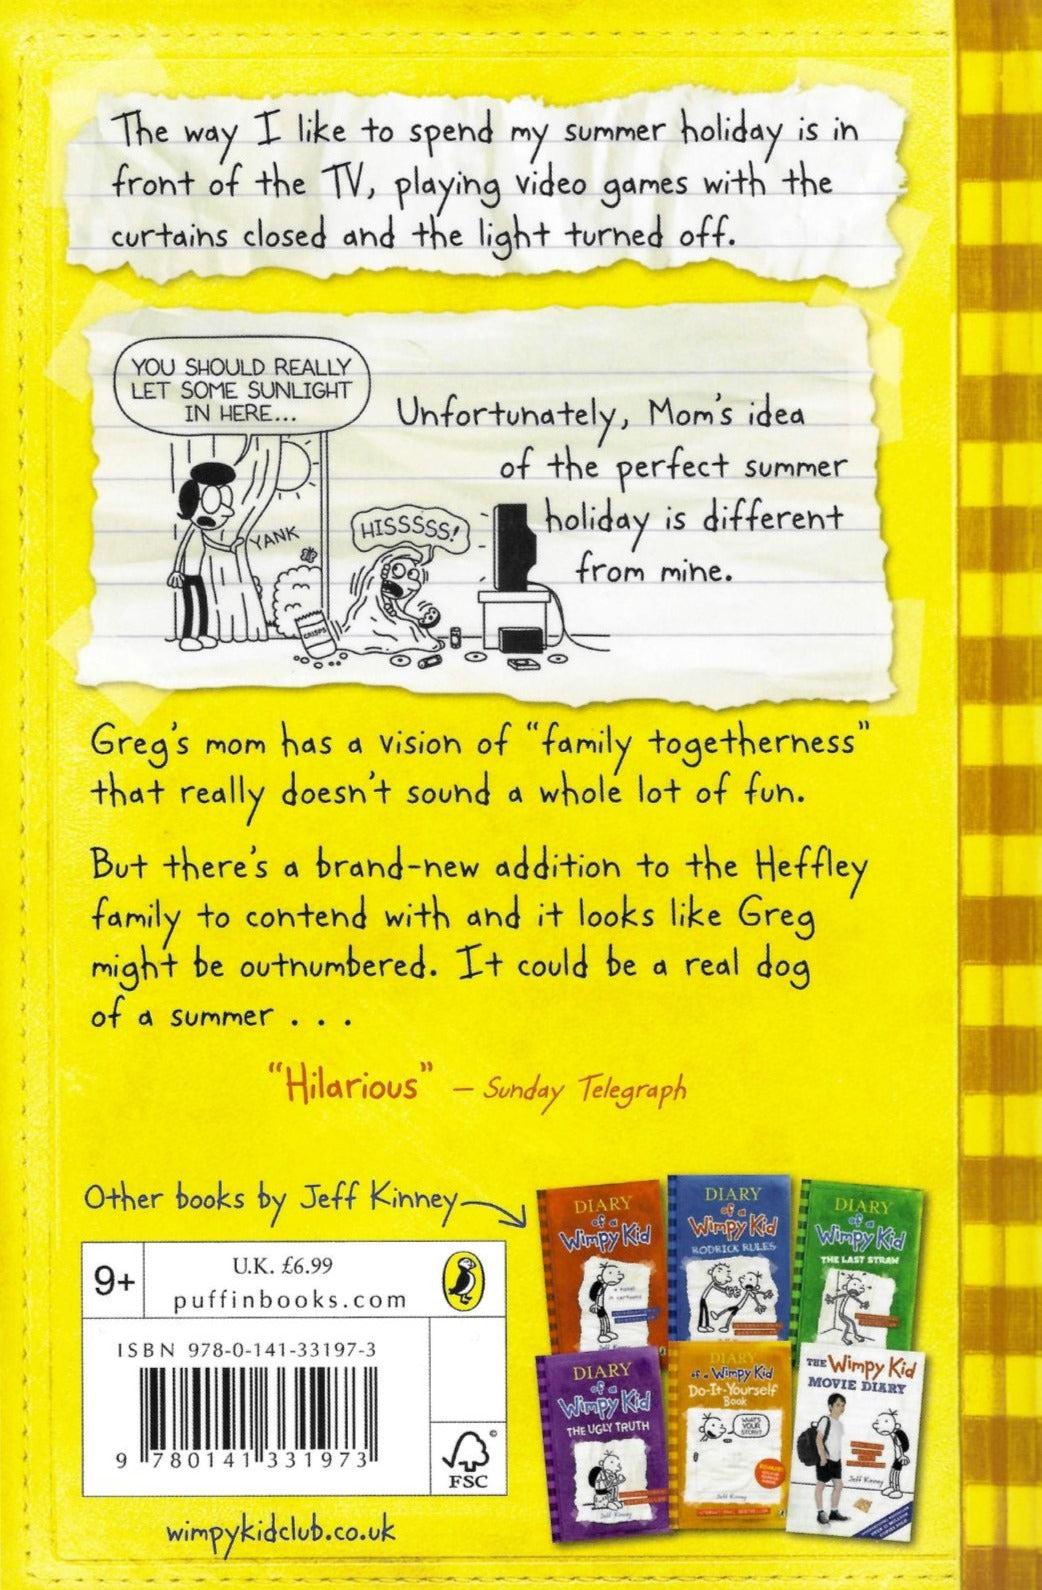 The way I like to spend my summer holiday is in
front of the TV, playing video games with the
curtains closed and the light turned off.
YOU SHOULD REALLY
LET SOME SUNLIGHT
IN HERE...
YANK
HISSSSS!
CRISPS
Unfortunately, Mom's idea
of the perfect summer
holiday is different
from mine.
Greg's mom has a vision of "family togetherness"
that really doesn't sound a whole lot of fun.
But there's a brand-new addition to the Heffley
family to contend with and it looks like Greg
might be outnumbered. It could be a real dog
of a summer . . .
"Hilarious" – Sunday Telegraph
Other books by Jeff Kinney
9+
U.K. £6.99
puffinbooks.com
ISBN 978-0-141-33197-3
9 780141 331973
FSC
©
wimpykidclub.co.uk
DIARY
of a
Wimpy Kid
a novel
in cartoons
DIARY
of a
Wimpy Kid
RODRICK RULES
DIARY
of a
Wimpy Kid
THE LAST STRAW
DIARY
of a
Wimpy Kid
THE UGLY TRUTH
Jeff Kinney
DIARY
of a Wimpy Kid
Do-It-Yourself
Book
WHAT'S
YOUR
STORY?
Jeff Kinney
THE Wimpy Kid
MOVIE DIARY
Jeff Kinney